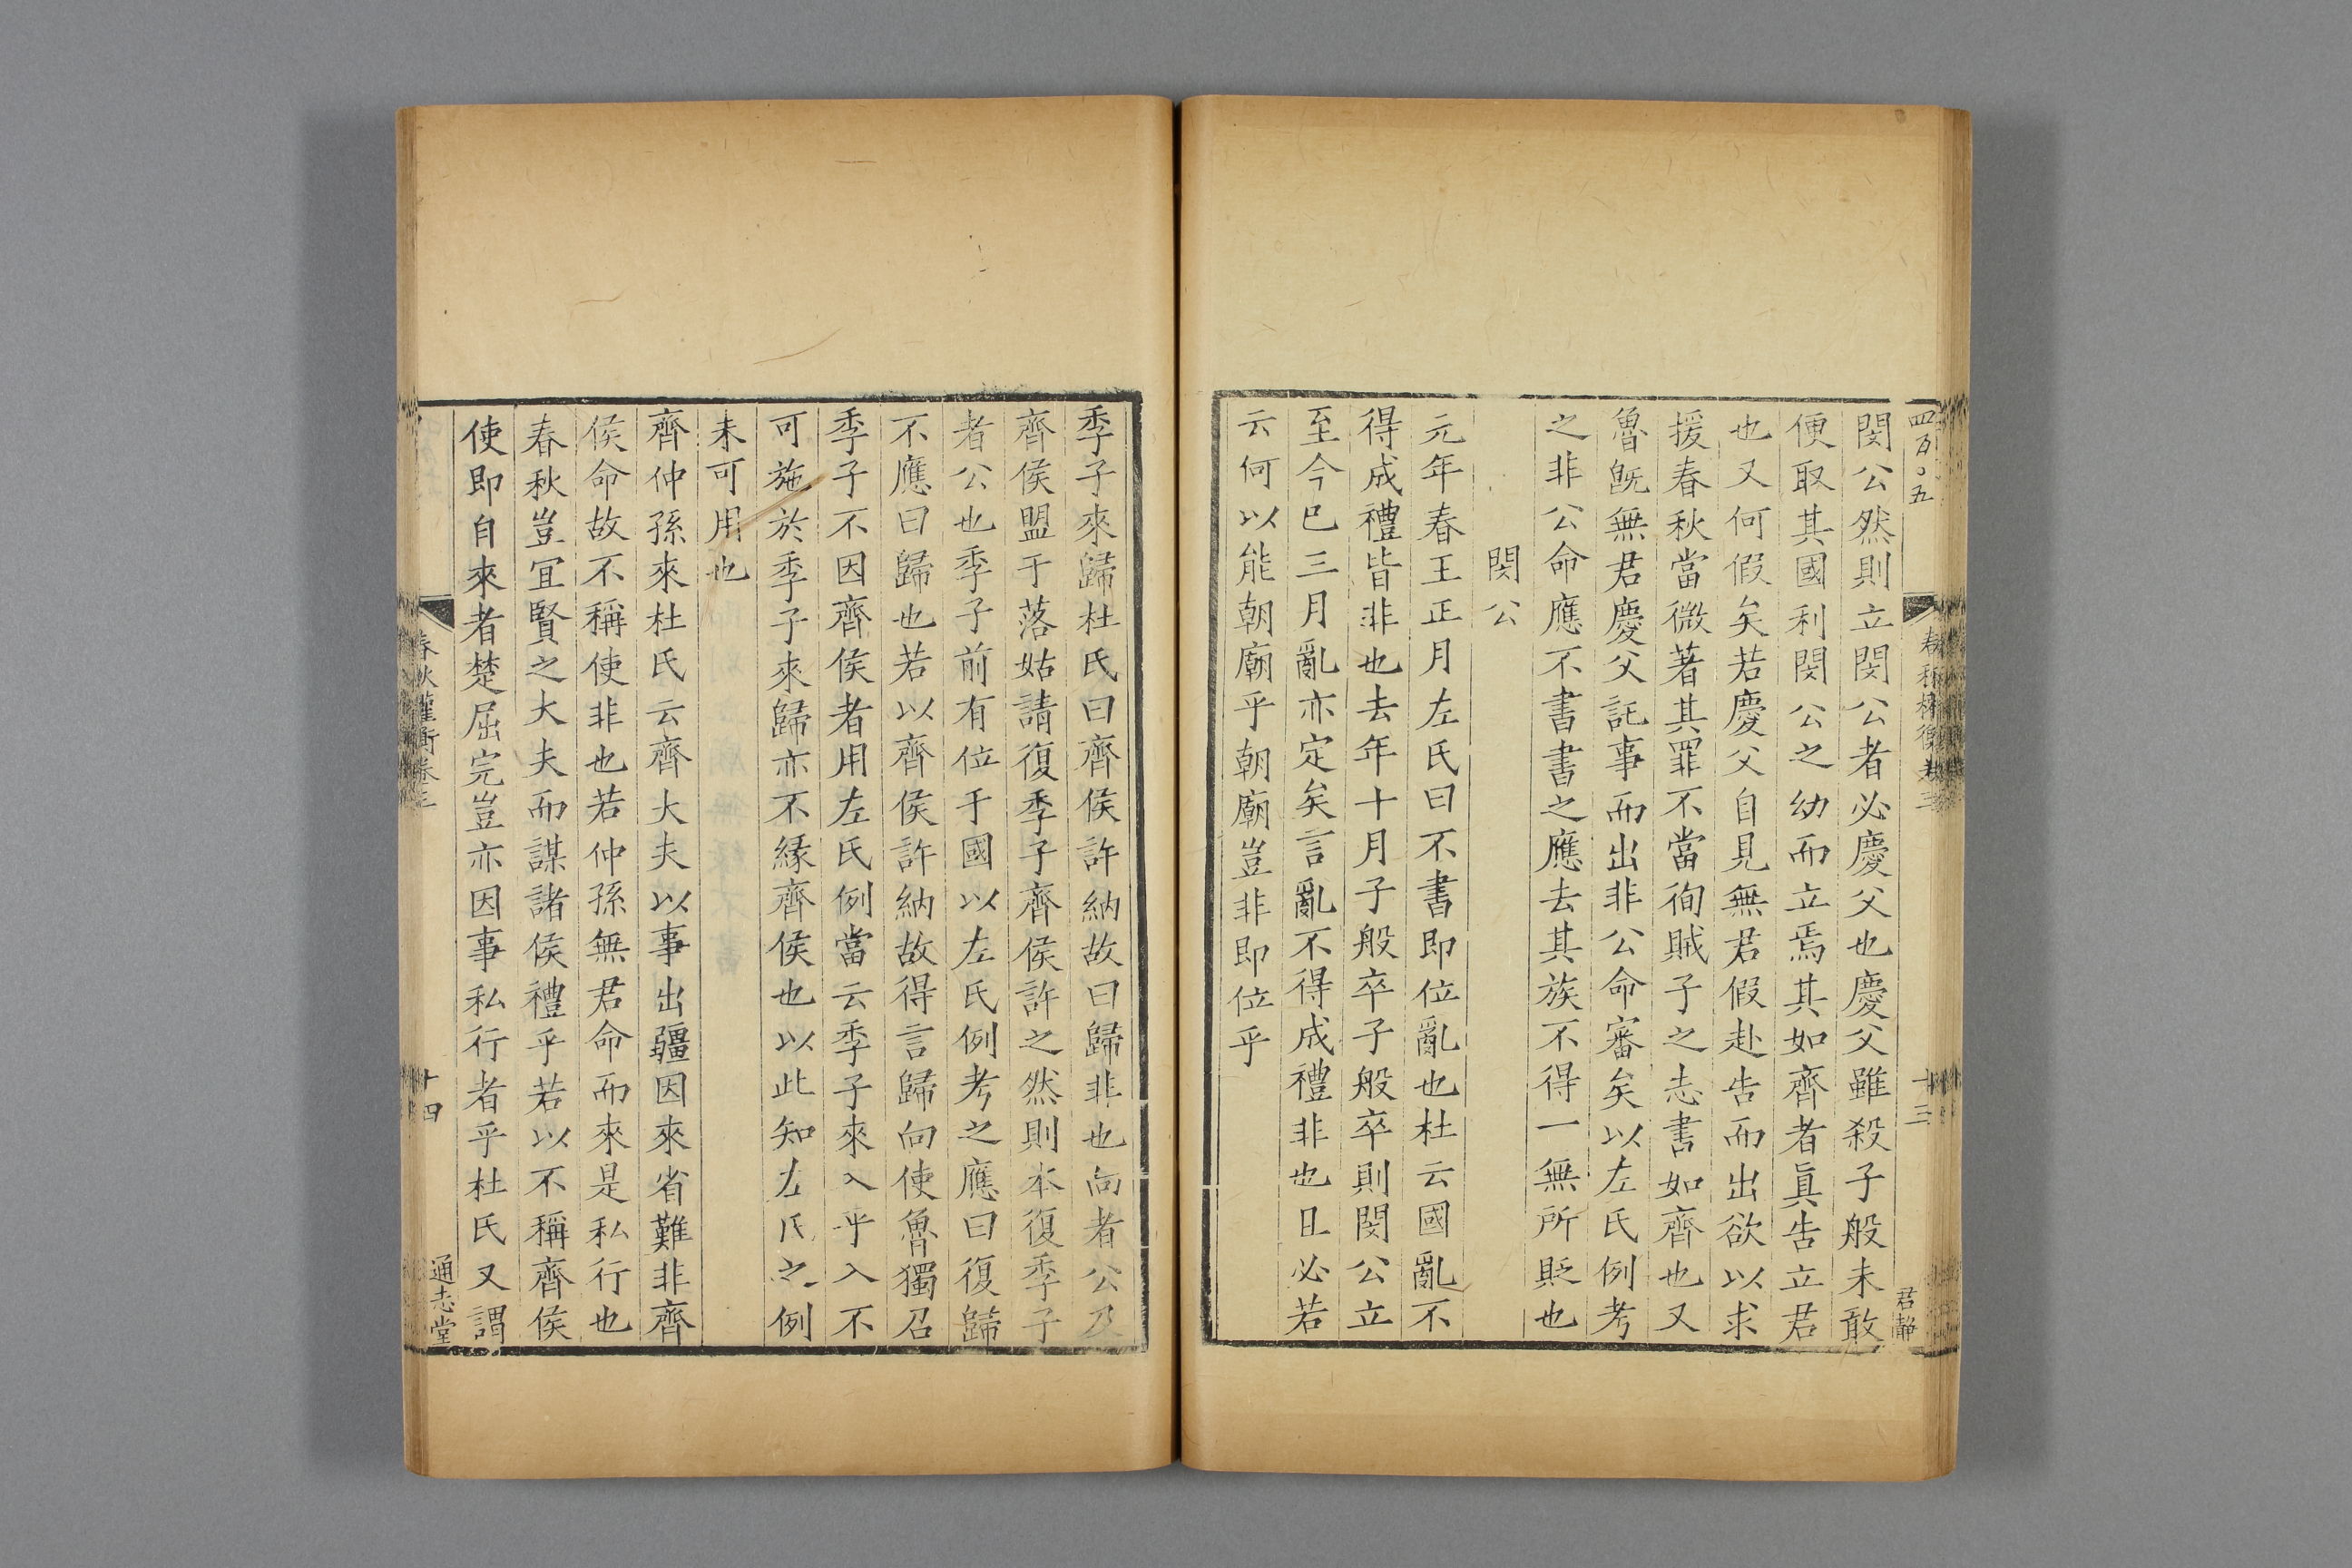 四百〇五
春秋權衡卷三
十三
君靜
閔公然則立閔公者必慶父也慶父雖殺子般未敢
便取其國利閔公之幼而立焉其如齊者眞告立君
也又何假矣若慶父自見無君假赴告而出欲以求
援春秋當微著其罪不當徇賊子之志書如齊也又
魯旣無君慶父託事而出非公命審矣以左氏例考
之非公命應不書書之應去其族不得一無所貶也
閔公
元年春王正月左氏曰不書即位亂也杜云國亂不
得成禮皆非也去年十月子般卒子般卒則閔公立
至今巳三月亂亦定矣言亂不得成禮非也且必若
云何以能朝廟乎朝廟豈非即位乎
季子來歸杜氏曰齊侯許納故曰歸非也向者公及
齊侯盟于落姑請復季子齊侯許之然則本復季子
者公也季子前有位于國以左氏例考之應曰復歸
不應曰歸也若以齊侯許納故得言歸向使魯獨召
季子不因齊侯者用左氏例當云季子來入乎入不
可施於季子來歸亦不緣齊侯也以此知左氏之例
未可用也
齊仲孫來杜氏云齊大夫以事出疆因來省難非齊
侯命故不稱使非也若仲孫無君命而來是私行也
春秋豈宜賢之大夫而謀諸侯禮乎若以不稱齊侯
使即自來者楚屈完豈亦因事私行者乎杜氏又謂
春秋權衡卷三
十四
通志堂